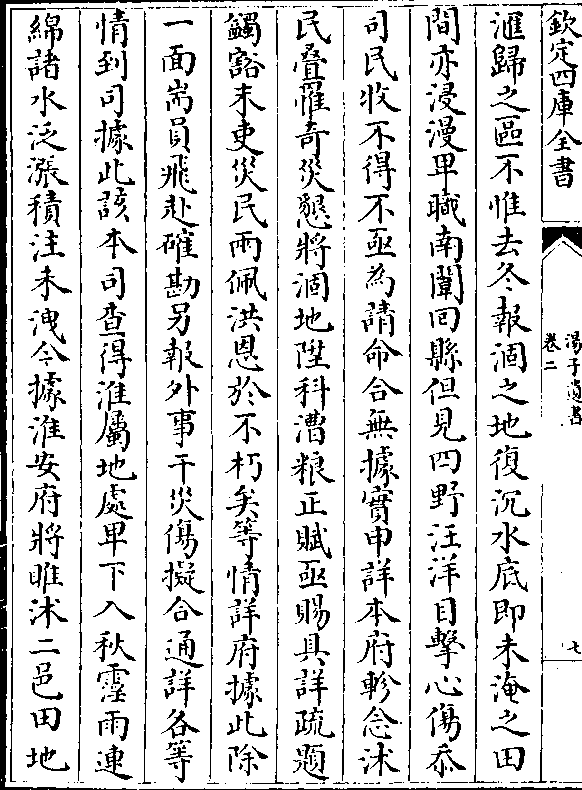 欽定四庫全書
湯子遺書
卷二
七
滙歸之區不惟去冬報涸之地復沉水底即未淹之田
間亦浸漫卑職南闈回縣但見四野汪洋目擊心傷忝
司民牧不得不亟為請命合無據實申詳本府軫念沭
民疊罹奇災懇將涸地陞科漕粮正賦亟賜具詳疏題
蠲豁未吏災民兩佩洪恩於不朽矣等情詳府據此除
一面耑員飛赴確勘另報外事干災傷擬合通詳各等
情到司據此該本司查得淮屬地處卑下入秋霪雨連
綿諸水泛漲積注未洩今據淮安府將睢沭二邑田地